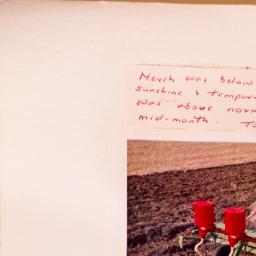 March was below
sunshine & tempera
was above norm
mid-month. To